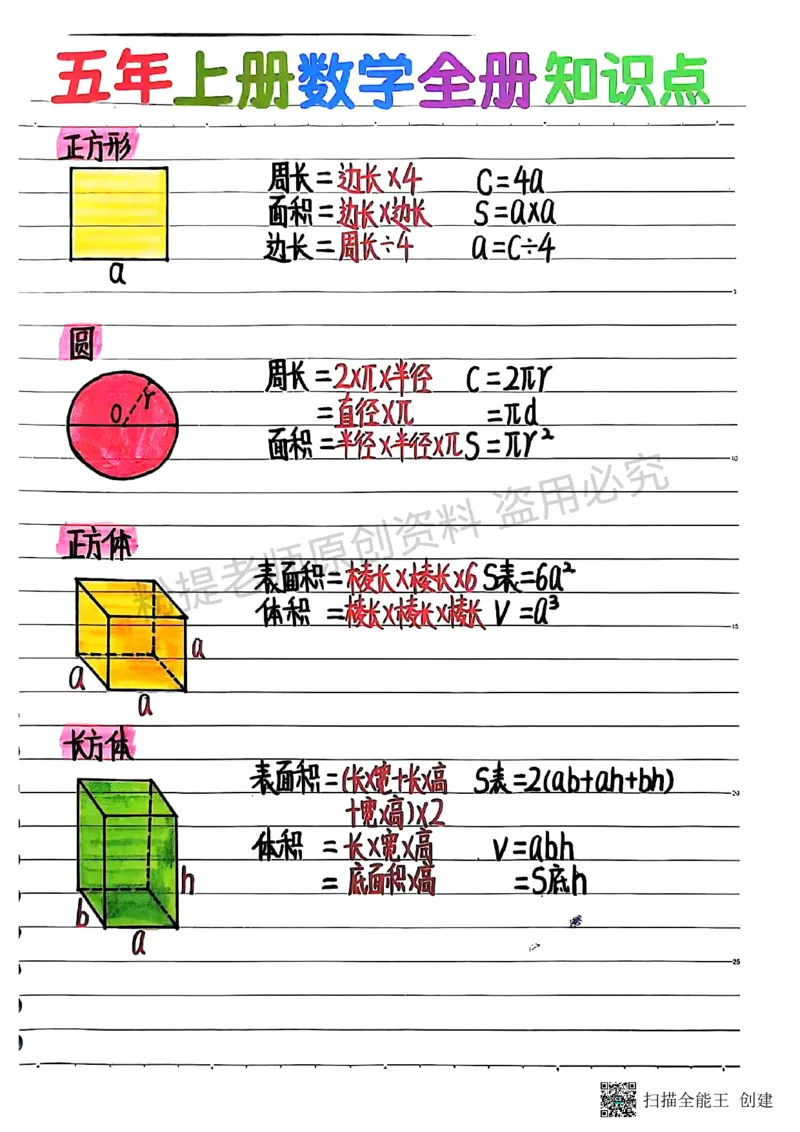 五年上册数学全册知识点
正方形
周长=边长×4 C=4a
面积=边长×边长 S=a×a
边长=周长÷4 a=C÷4
a
5
圆
周长=2×π×半径 C=2πr
=直径×π =πd
面积=半径×半径×π S=πr²
O r
10
粉提老师原创资料 盗用必究
正方体
表面积=棱长×棱长×6 S表=6a²
体积 =棱长×棱长×棱长 V=a³
15
a
a
a
长方体
表面积=(长×宽+长×高 S表=2(ab+ah+bh)
20
+宽×高)×2
体积 =长×宽×高 V=abh
=底面积×高 =S底h
h
b
a
25
扫描全能王 创建